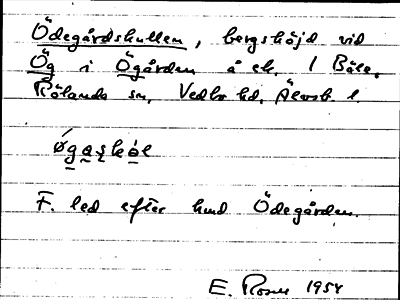 Ödegårdskullen, bergshöjd vid
Ög i Ögården å ek. 1 Båle,
Rölanda sn, Vedbo hd, Älvsb. l.
ǿgaskål
F. led efter hund Ödegården.
E. Rosen 1954